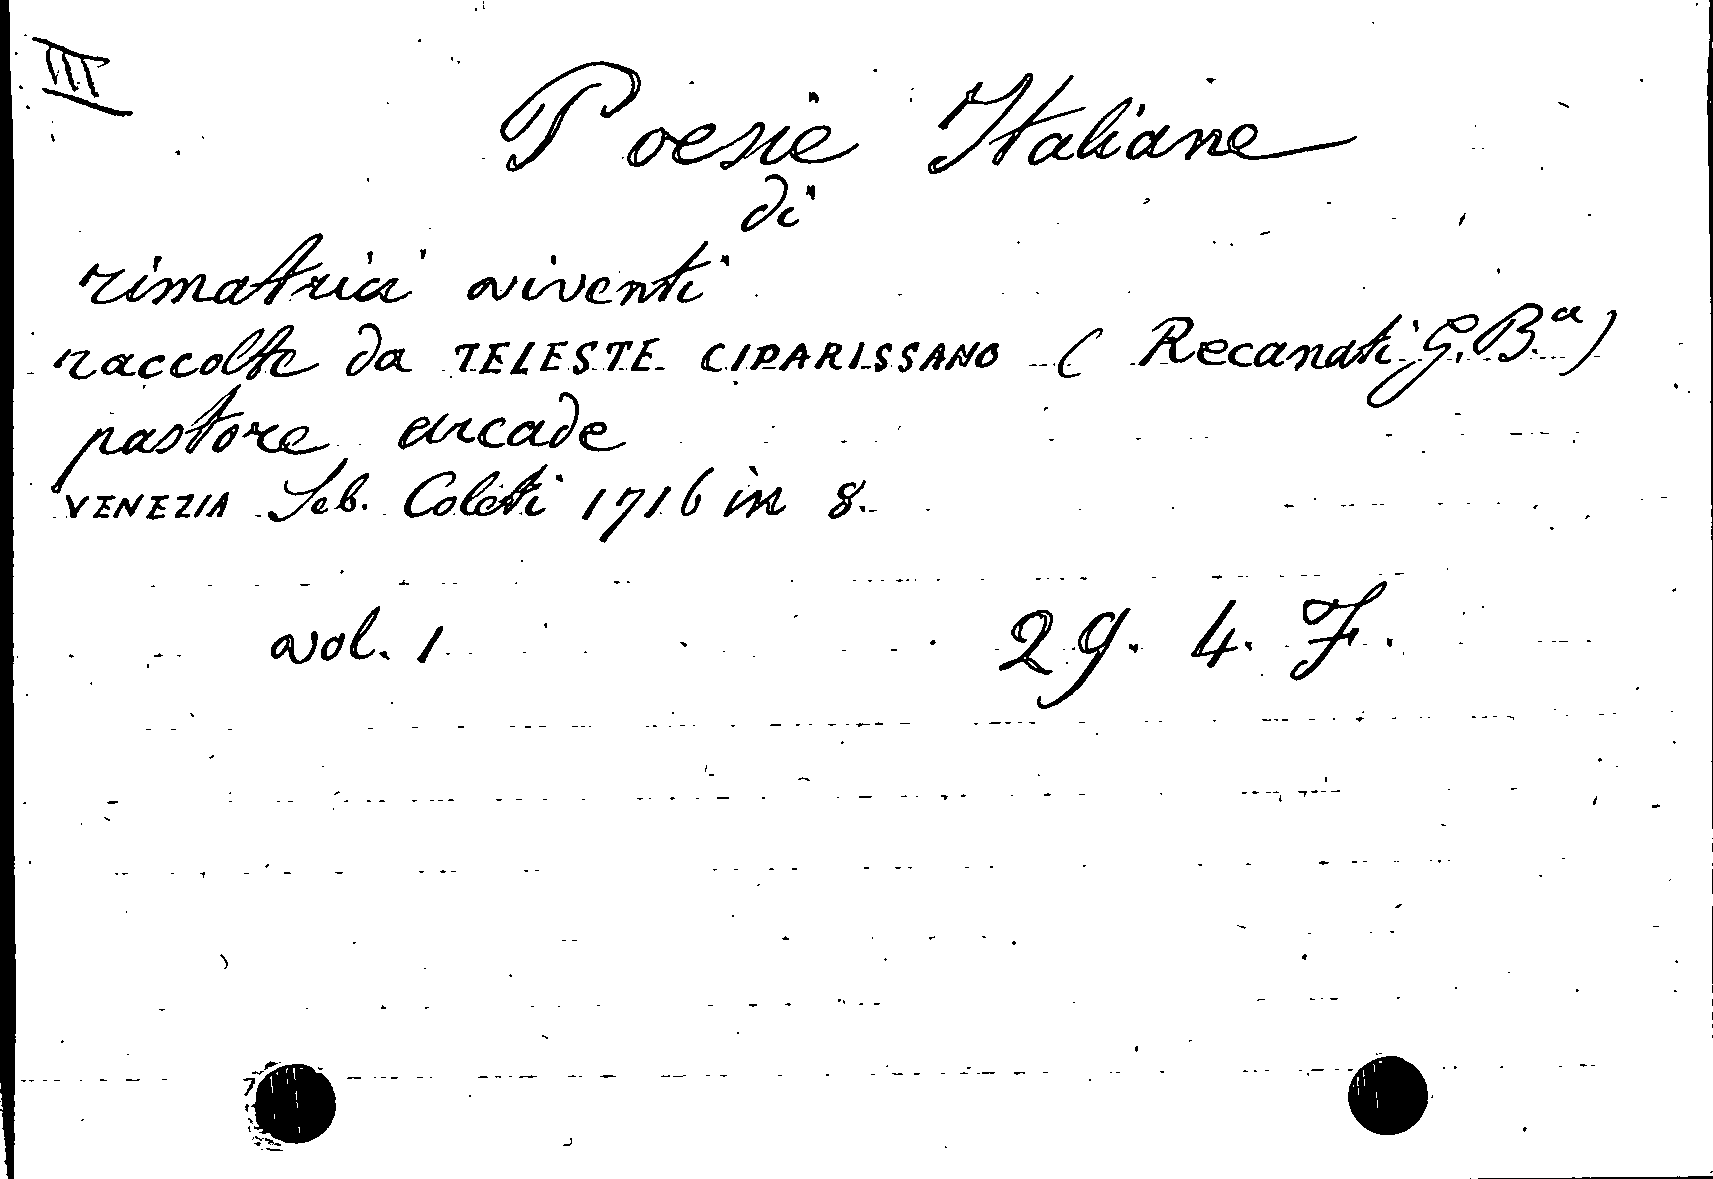 III
Poesie Italiane
di
rimatrici viventi
raccolte da TELESTE CIPARISSANO (Recanati G. B.a)
pastore arcade
VENEZIA Seb. Coleti 1716 in 8.
vol. 1 29. 4. F.